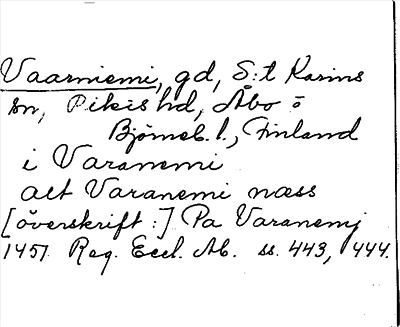 Vaarniemi, gd, S:t Karins
sn, Pikis hd, Åbo o
Björneb. l., Finland
i Varanemi
alt Varanemi næss
[överskrift:] Pa Varanemj
1451 Reg. Eccl. Ab. ss. 443, 444.